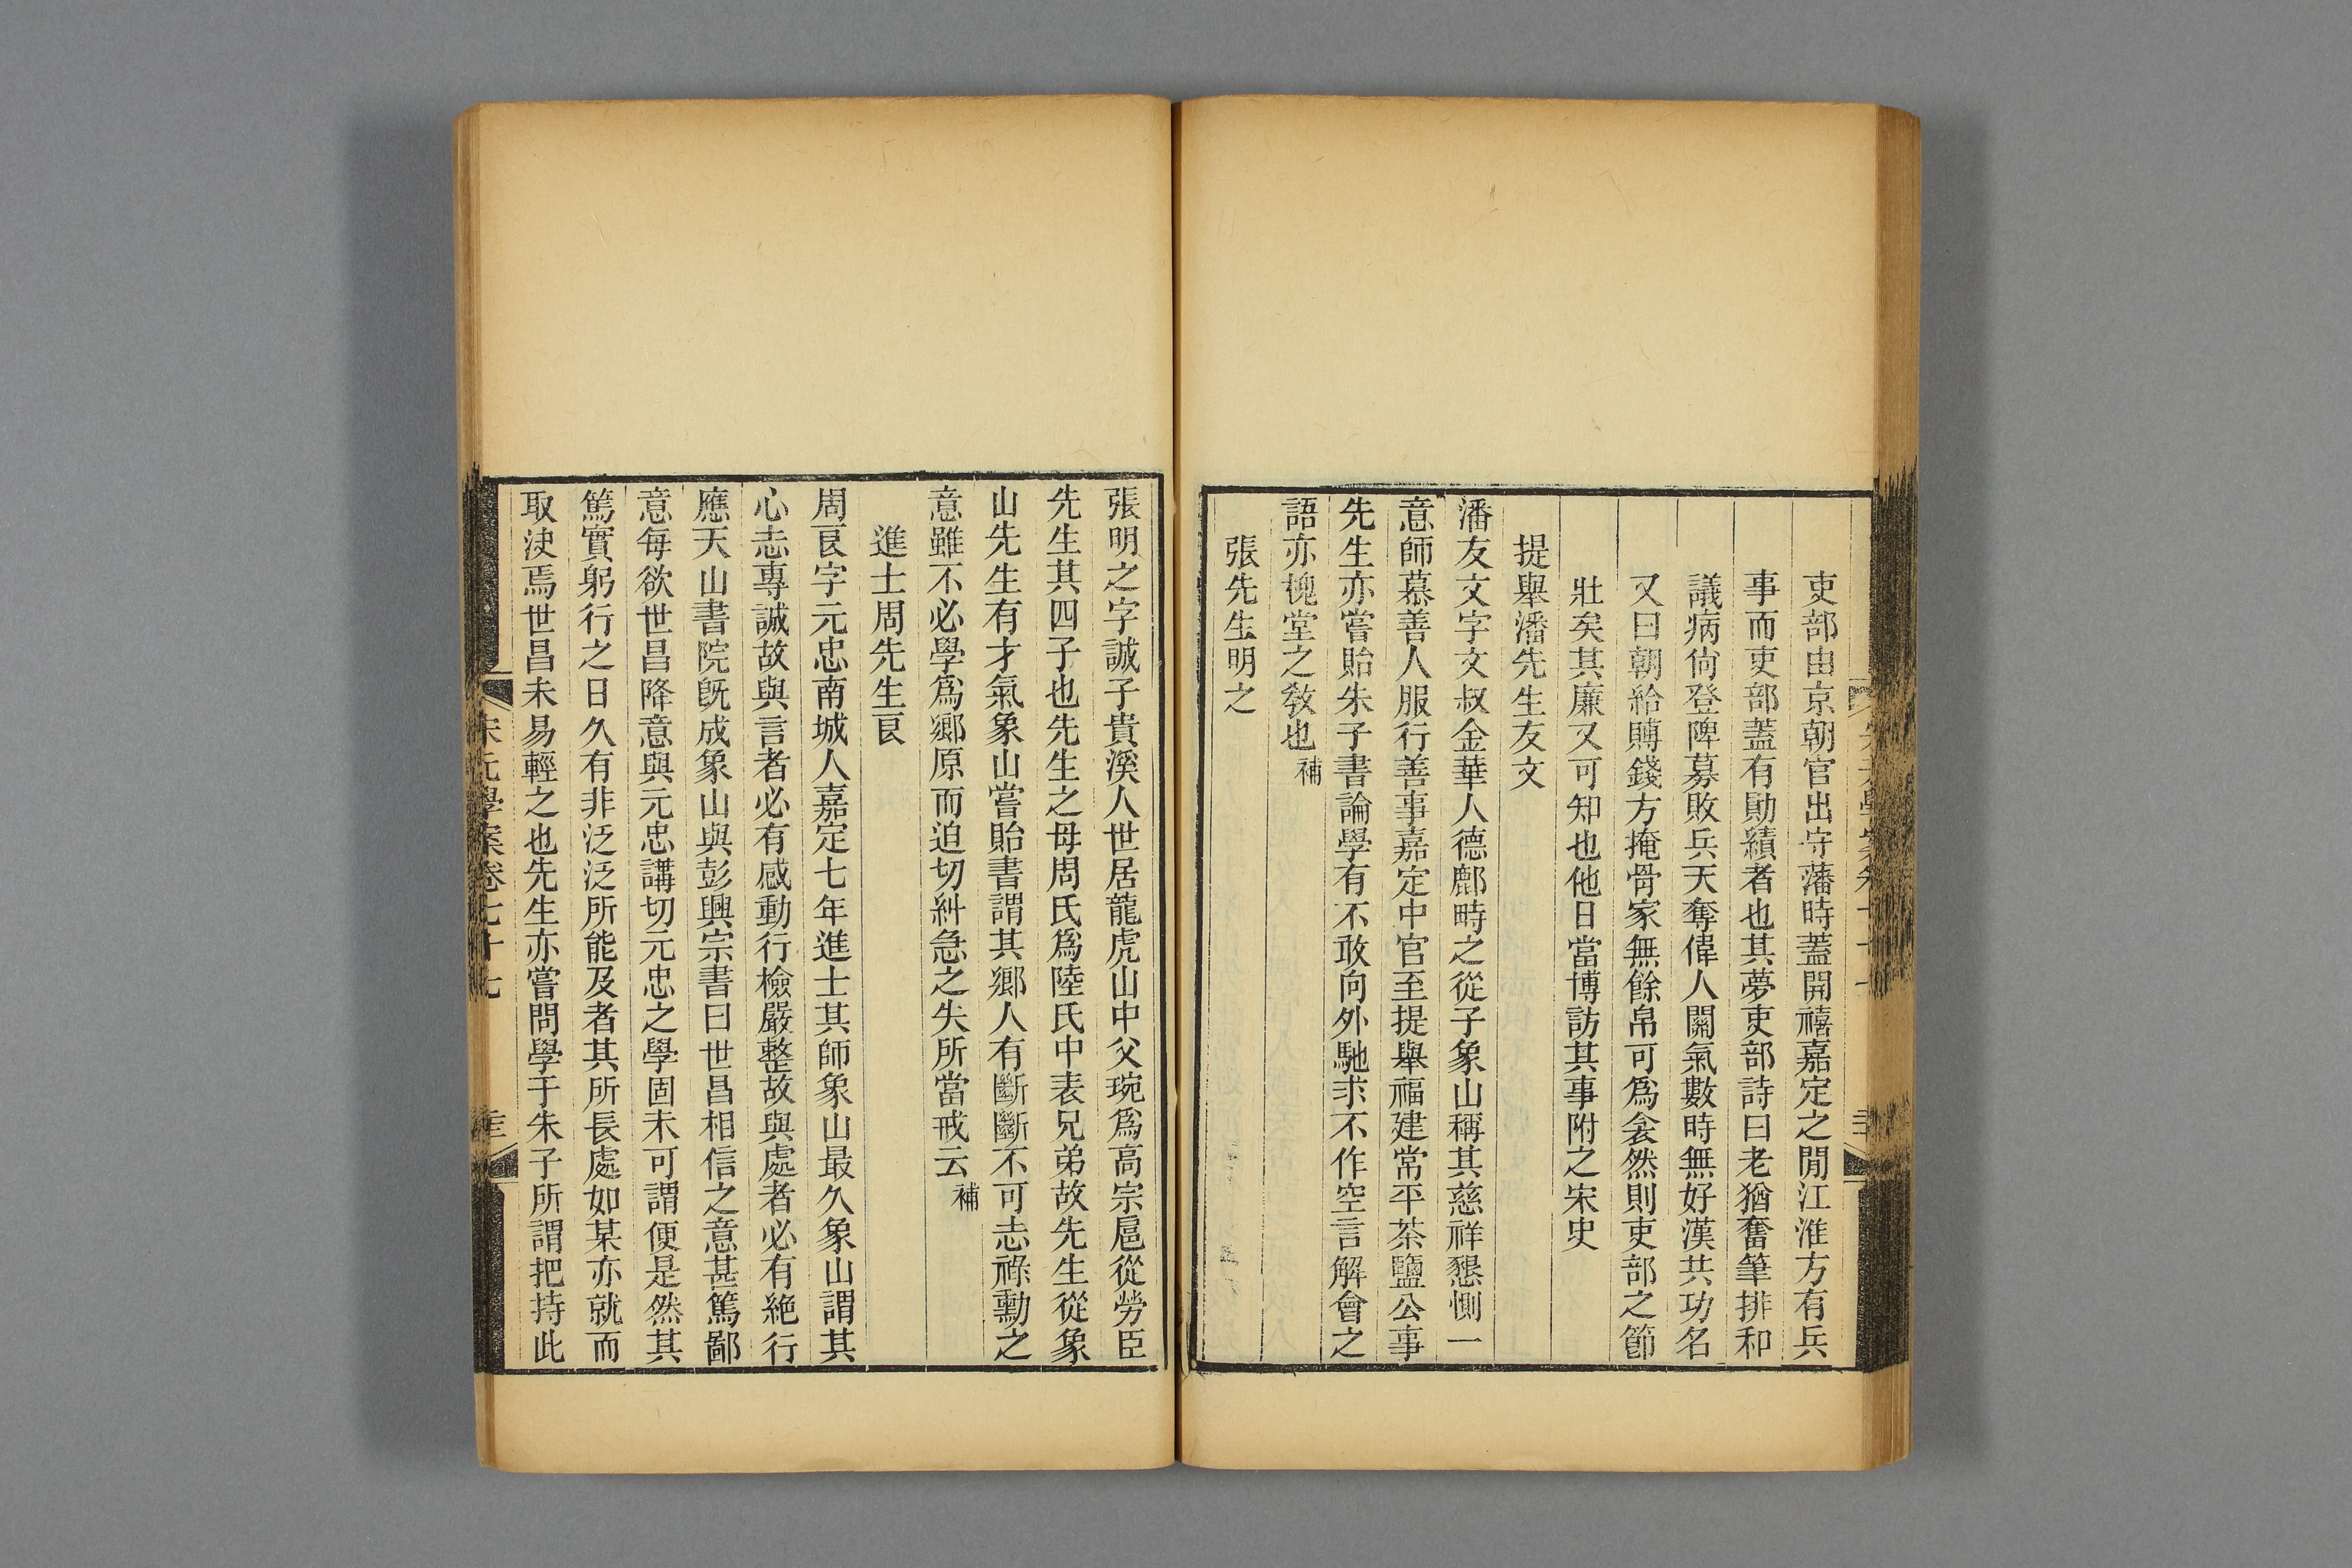 吏部由京朝官出守藩時蓋開禧嘉定之閒江淮方有兵
事而吏部蓋有勛績者也其夢吏部詩曰老猶奮筆排和
議病尙登陴募敗兵天奪偉人關氣數時無好漢共功名
又曰朝給賻錢方掩骨家無餘帛可爲衾然則吏部之節
壯矣其廉又可知也他日當博訪其事附之宋史
提舉潘先生友文
潘友文字文叔金華人德鄜畤之從子象山稱其慈祥懇惻一
意師慕善人服行善事嘉定中官至提舉福建常平茶鹽公事
先生亦嘗貽朱子書論學有不敢向外馳求不作空言解會之
語亦槐堂之敎也補
張先生明之
張明之字誠子貴溪人世居龍虎山中父琬爲高宗扈從勞臣
先生其四子也先生之母周氏爲陸氏中表兄弟故先生從象
山先生有才氣象山嘗貽書謂其鄉人有斷斷不可忘祿勳之
意雖不必學爲鄉原而迫切糾急之失所當戒云補
進士周先生良
周良字元忠南城人嘉定七年進士其師象山最久象山謂其
心志專誠故與言者必有感動行檢嚴整故與處者必有絶行
應天山書院旣成象山與彭興宗書曰世昌相信之意甚篤鄙
意每欲世昌降意與元忠講切元忠之學固未可謂便是然其
篤實躬行之日久有非泛泛所能及者其所長處如某亦就而
取決焉世昌未易輕之也先生亦嘗問學于朱子所謂把持此
宋元學案卷七十七